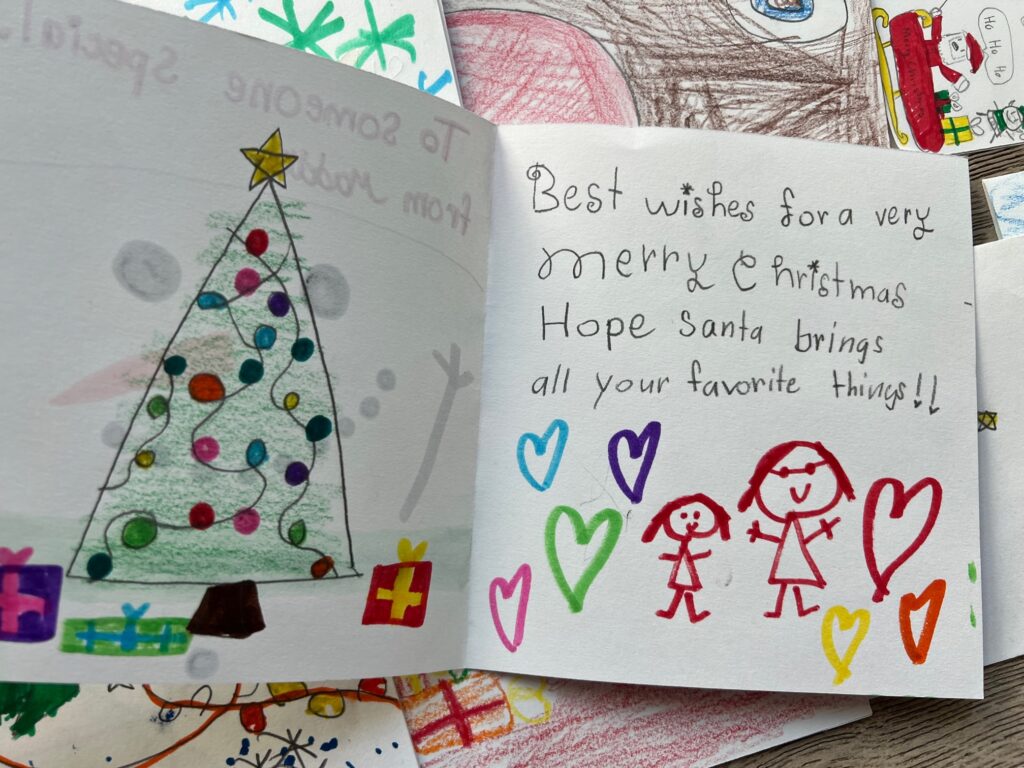 To Someone Special
from Maddi
Best wishes for a very
merry Christmas
Hope Santa brings
all your favorite things!!
Ho Ho Ho